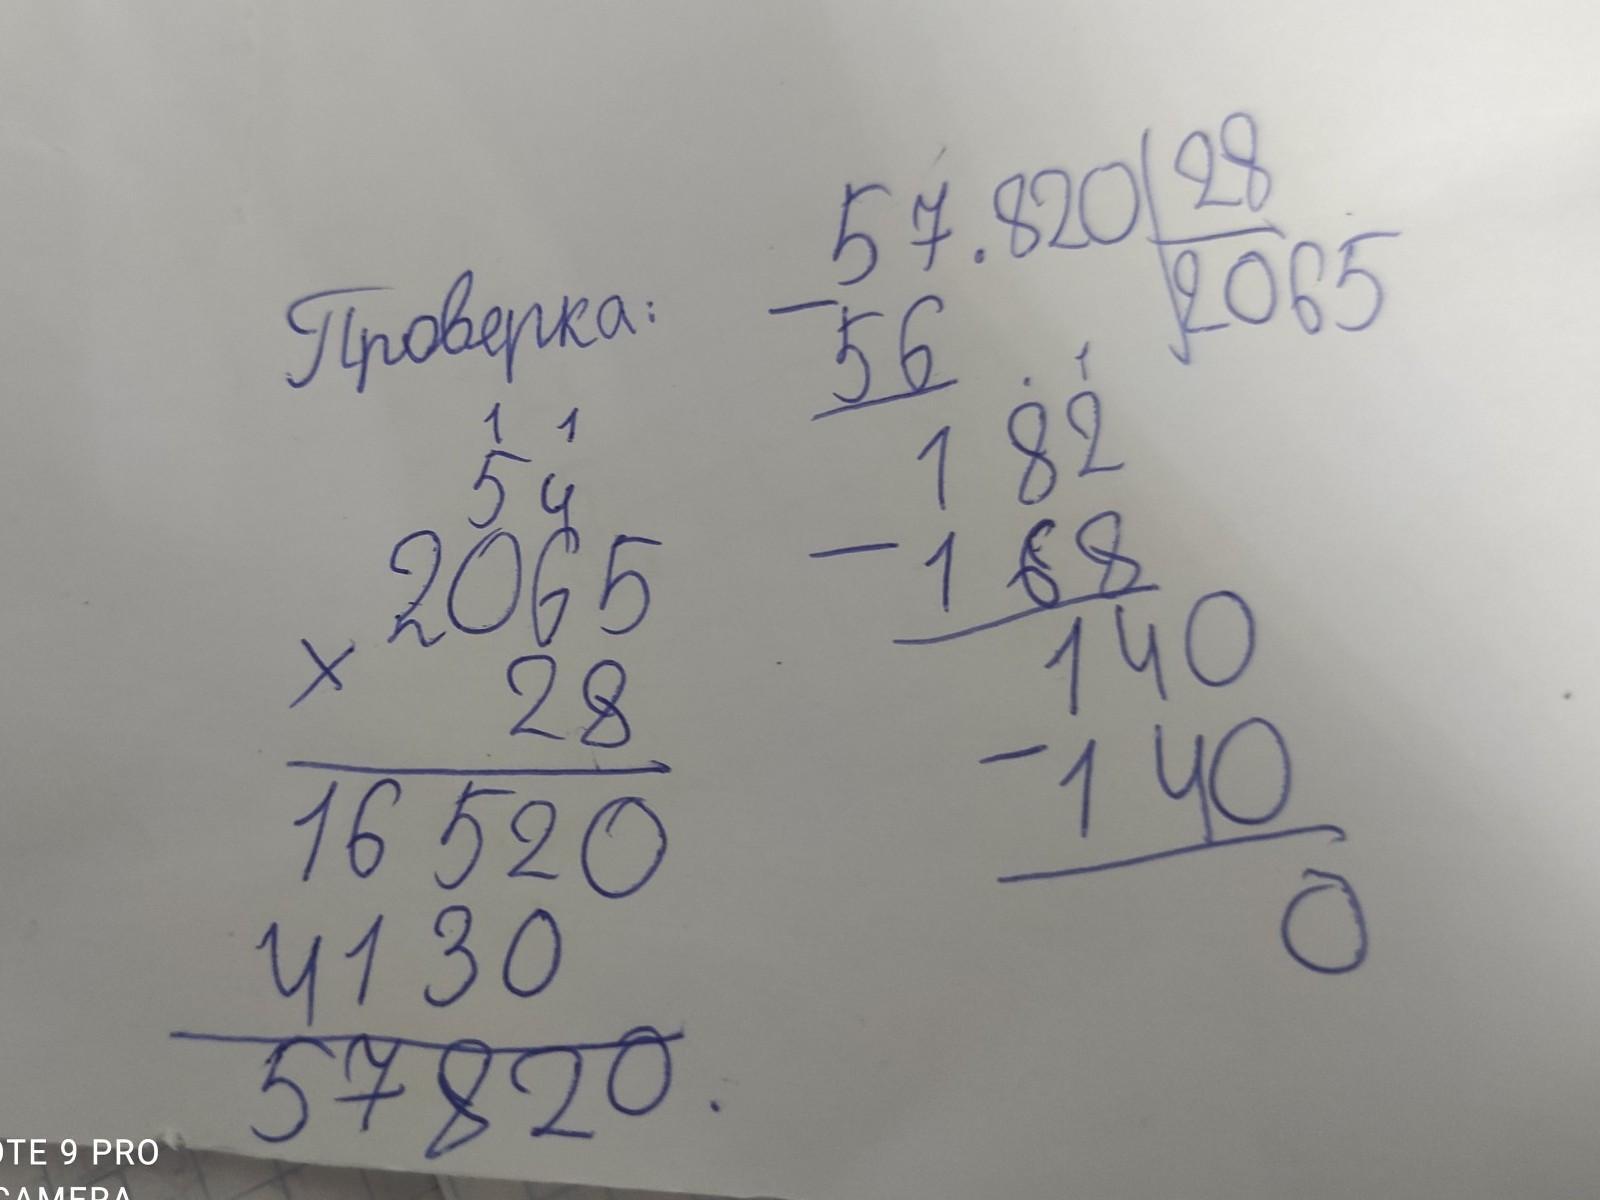 Проверка:
1 1
5 4
2065
× 28
16520
4130
57820.
57.820 28
2065
- 56
182
- 168
140
- 140
0
OTE 9 PRO
CAMERA